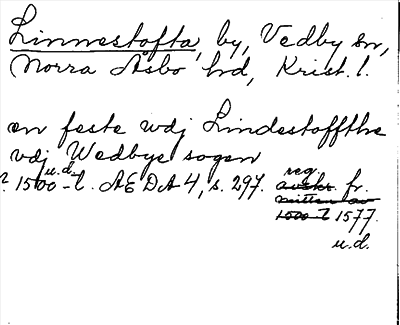 Linnestofta, by, Vedby sn,
Norra Åsbo hd, Krist. l.
en feste wdj Lindestoffthe
vdj Wedbye sogen
u.d. reg.
? 1500-t. AEDA 4, s. 297. avskr. fr.
mitten av
1500-t 1577.
u.d.